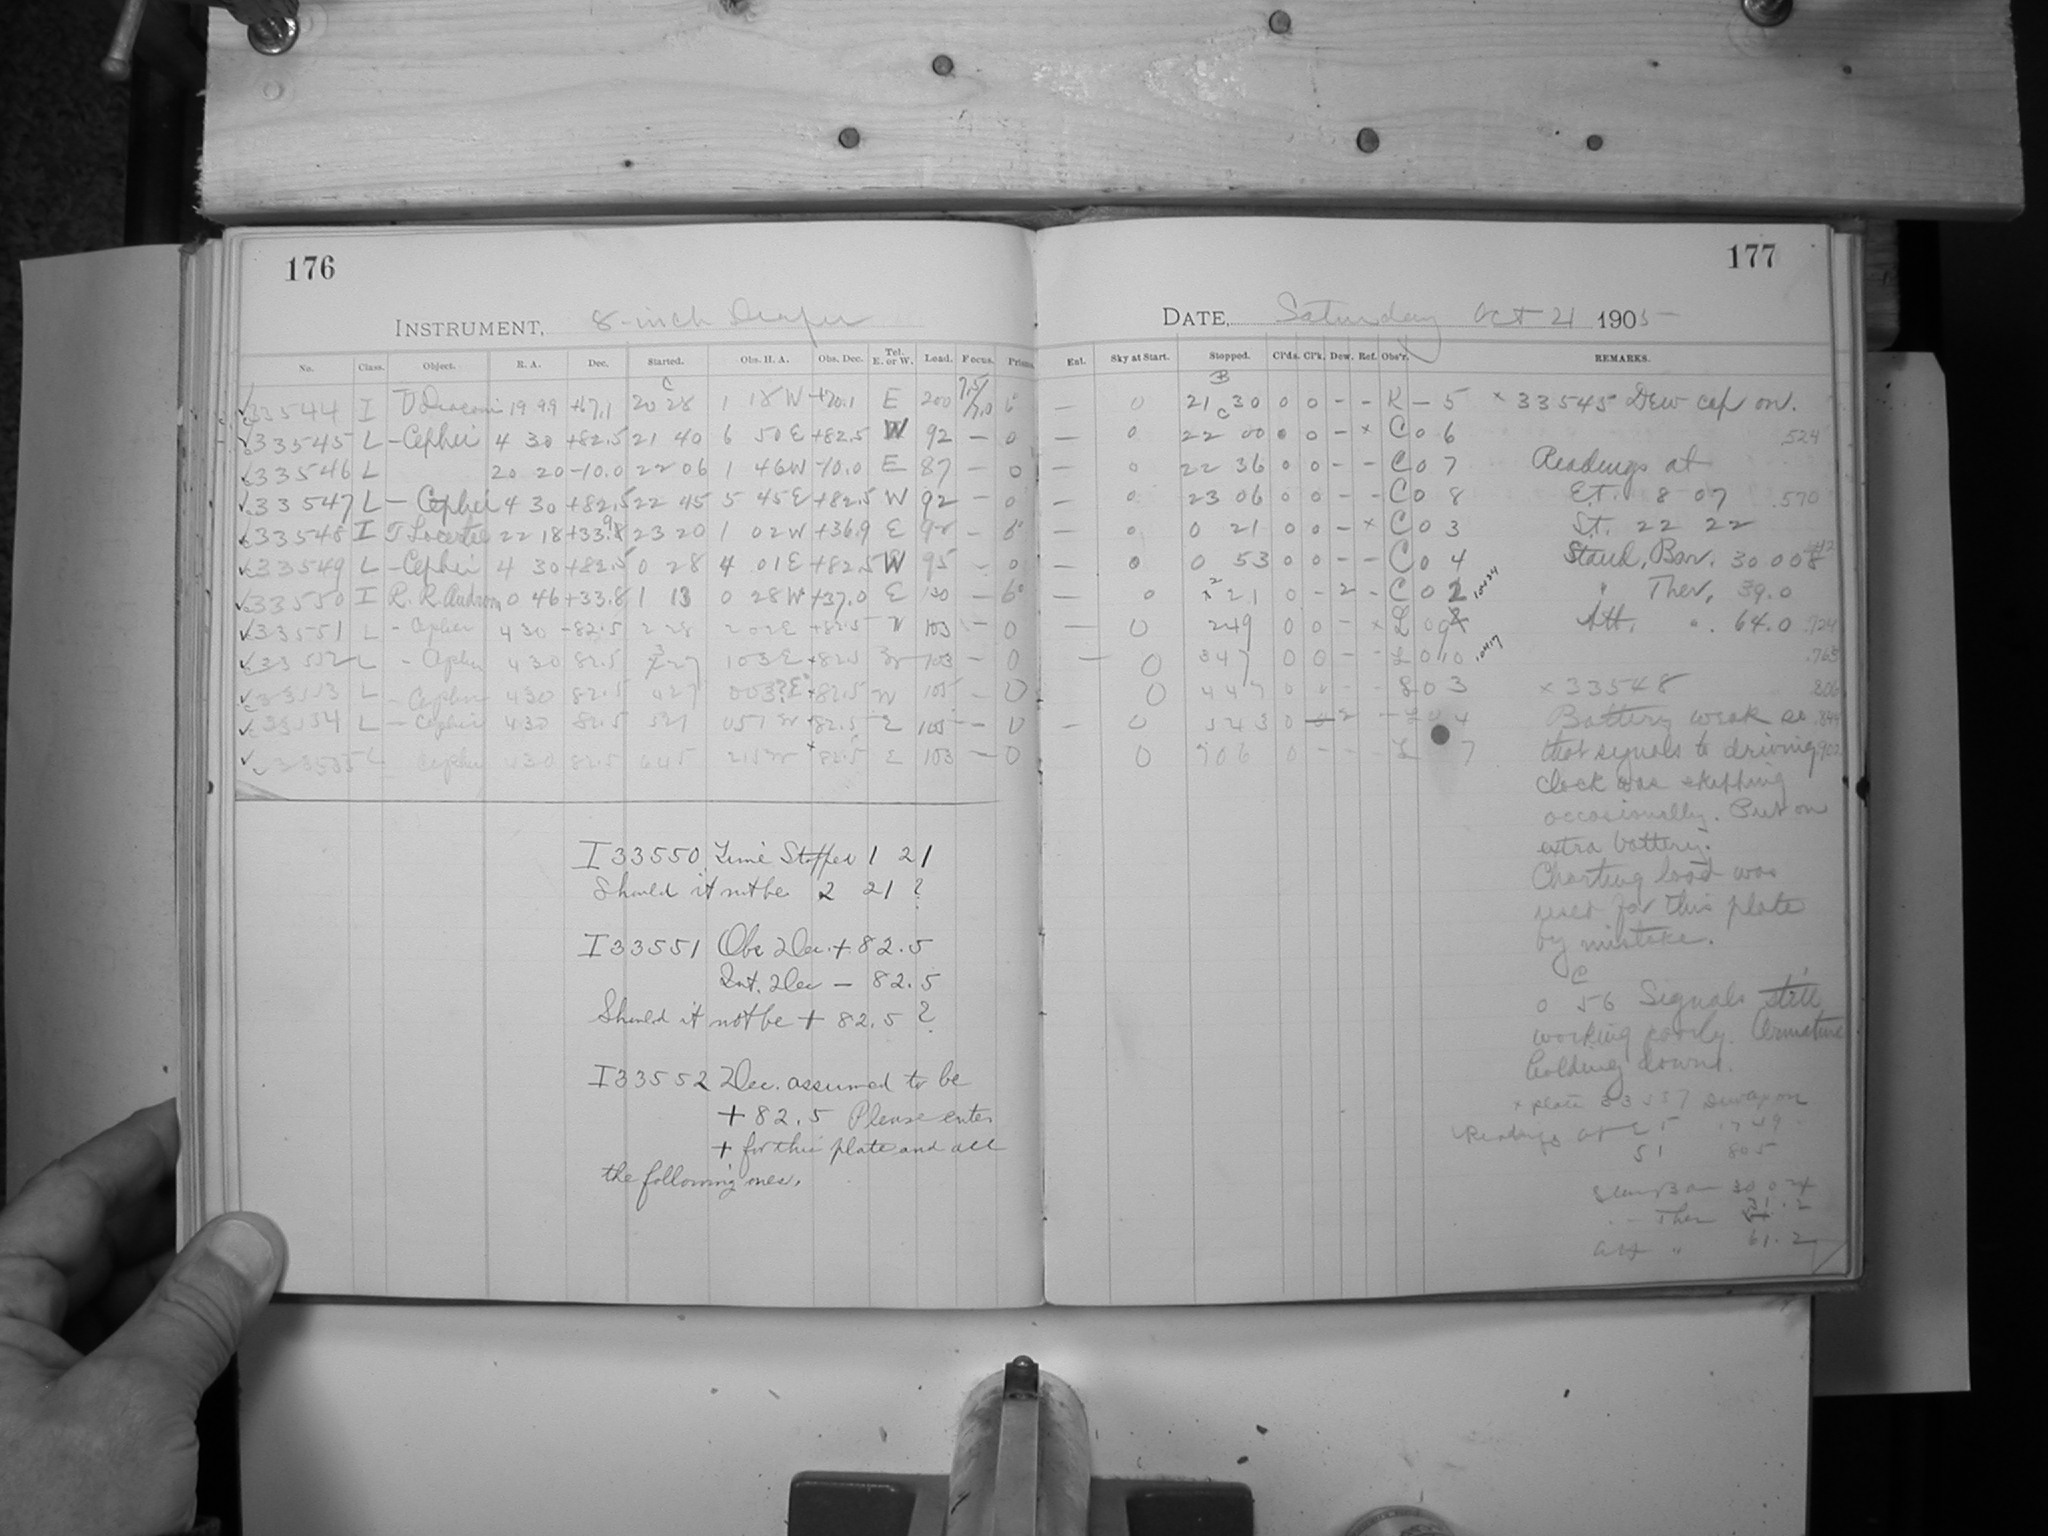 176
INSTRUMENT, 8-inch Draper
No. Class. Object. R. A. Dec. Started. Obs. H. A. Obs. Dec. Tel. E. or W. Load. Focus. Prism
33544 I U Draconi 19 9.9 +67.1 20 28 1 18 W +70.1 E 200 7.5/7.0 6°
33545 L - Cephei 4 30 +82.5 21 40 6 50 E +82.5 W 92 - 0
33546 L 20 20 -10.0 22 06 1 46 W -10.0 E 87 - 0
33547 L - Cephei 4 30 +82.5 22 45 5 45 E +82.5 W 92 - 0
33548 I 22 18 23 20 1 02 W +36.9 E - 6°
33549 L - Cephei 4 30 +82.5 0 28 4 01 E +82.5 W 95 - 0
33550 I R. R. Androm 0 46 +33.8 1 13 0 28 W +37.0 E 6°
33551 L - Cephei 4 30 -82.5 2 28 2 02 E +82.5 W 103 - 0
33552 L - Cephei 4 30 82.5 3 27 1 03 E +82.5 W 103 - 0
33553 L - Cephei 4 30 82.5 4 27 +82.5 W 105 - 0
33554 L - Cephei 4 30 82.5 5 21 0 51 W +82.5 E 105 - 0
L Cephei 4 30 82.5 6 45 2 15 W 82.5 E 103 - 0
I 33550 Time Stopped 1 21
Should it not be 2 21 ?
I 33551 Obs Dec. + 82.5
Int. Dec - 82.5
Should it not be + 82.5 ?
I 33552 Dec. assumed to be
+ 82.5 Please enter
+ for this plate and all
the following ones.
177
DATE, Saturday Oct 21 1905
Ent. Sky at Start. Stopped. Cl'ds. Cl'k. Dew. Ref. Obs'r. REMARKS.
- 0 21 30 0 0 - - K - 5 × 33545 Dew cap on.
- 0 22 00 0 0 - × C 0 6 .524
- 0 22 36 0 0 - - C 0 7 Readings at
- 0 23 06 0 0 - - C 0 8 E.T. 8 07 .570
- 0 0 21 0 0 - × C 0 3 S.T. 22 22
- 0 0 53 0 0 - - C 0 4 Stand, Bar. 30.008
- 0 2 21 0 - 2 - C 0 2 " Ther, 39.0
- 0 2 49 0 0 - × L 0 9 Att. ". 64.0 .724
- 0 3 47 0 0 - - L 0 10 .763
0 4 47 0 - - 0 3 × 33548 .806
- 0 5 43 0 2 - L 0 4 Battery weak so .844
0 7 06 0 - - - L 7 that signals to driving
clock was skipping
occasionally. Put on
extra battery.
Charting load was
used for this plate
by mistake.
C
0 56 Signals still
working poorly. Armature
holding down.
× plate Dewcap on
Readings at
51 805
Stan Bar 30 024
" Ther 31.2
Att " 61.2